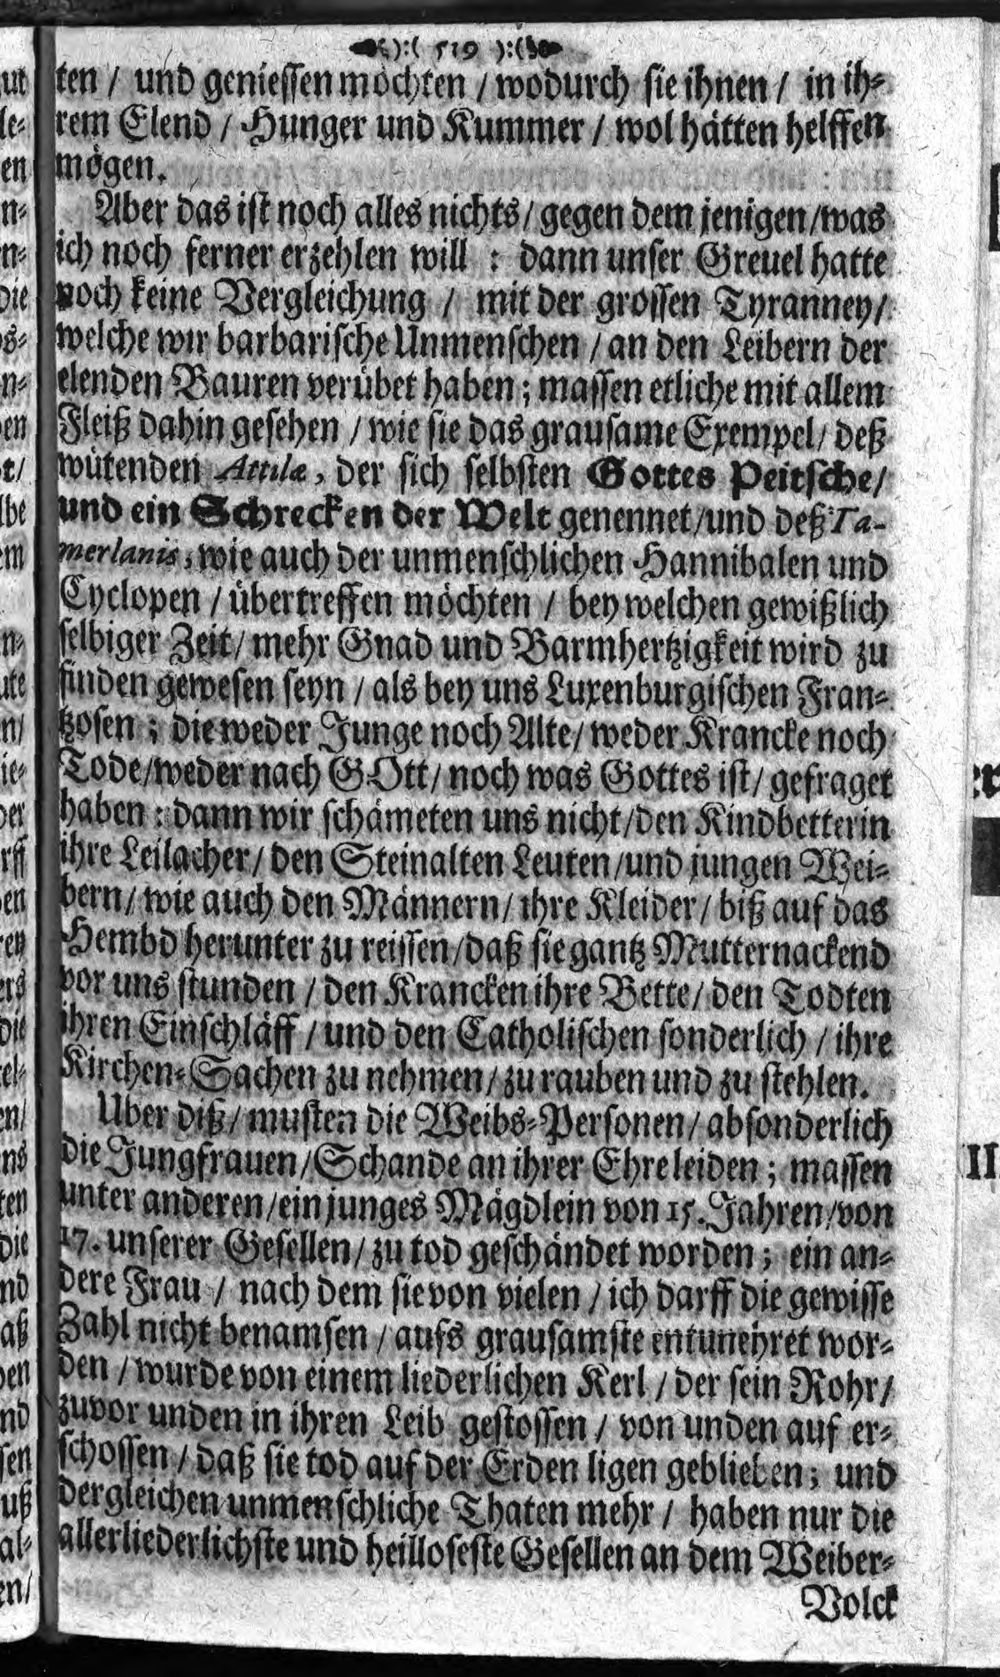 ):( 519 ):(
ten / und geniessen möchten / wodurch sie ihnen / in ih-
rem Elend / Hunger und Kummer / wol hätten helffen
mögen.
Aber das ist noch alles nichts / gegen dem jenigen / was
ich noch ferner erzehlen will : dann unser Greuel hatte
noch keine Vergleichung / mit der grossen Tyranney /
welche wir barbarische Unmenschen / an den Leibern der
elenden Bauren verübet haben ; massen etliche mit allem
Fleiß dahin gesehen / wie sie das grausame Exempel / deß
wütenden Attilæ, der sich selbsten Gottes Peitsche /
und ein Schrecken der Welt genennet / und deß Ta-
merlanis, wie auch der unmenschlichen Hannibalen und
Cyclopen / übertreffen möchten / bey welchen gewißlich
selbiger Zeit / mehr Gnad und Barmhertzigkeit wird zu
finden gewesen seyn / als bey uns Luxenburgischen Fran-
tzosen ; die weder Junge noch Alte / weder Krancke noch
Tode / weder nach GOtt / noch was Gottes ist / gefraget
haben : dann wir schämeten uns nicht / den Kindbetterin
ihre Leilacher / den Steinalten Leuten / und jungen Wei-
bern / wie auch den Männern / ihre Kleider / biß auf das
Hembd herunter zu reissen / daß sie gantz Mutternackend
vor uns stunden / den Krancken ihre Bette / den Todten
ihren Einschläff / und den Catholischen sonderlich / ihre
Kirchen-Sachen zu nehmen / zu rauben und zu stehlen.
Uber diß / musten die Weibs-Personen / absonderlich
die Jungfrauen / Schande an ihrer Ehre leiden ; massen
unter anderen / ein junges Mägdlein von 15. Jahren / von
17. unserer Gesellen / zu tod geschändet worden ; ein an-
dere Frau / nach dem sie von vielen / ich darff die gewisse
Zahl nicht benamsen / aufs grausamste entunehret wor-
den / wurde von einem liederlichen Kerl / der sein Rohr /
zuvor unden in ihren Leib gestossen / von unden auf er-
schossen / daß sie tod auf der Erden ligen geblieben ; und
dergleichen unmenschliche Thaten mehr / haben nur die
allerliederlichste und heilloseste Gesellen an dem Weiber-
Volck